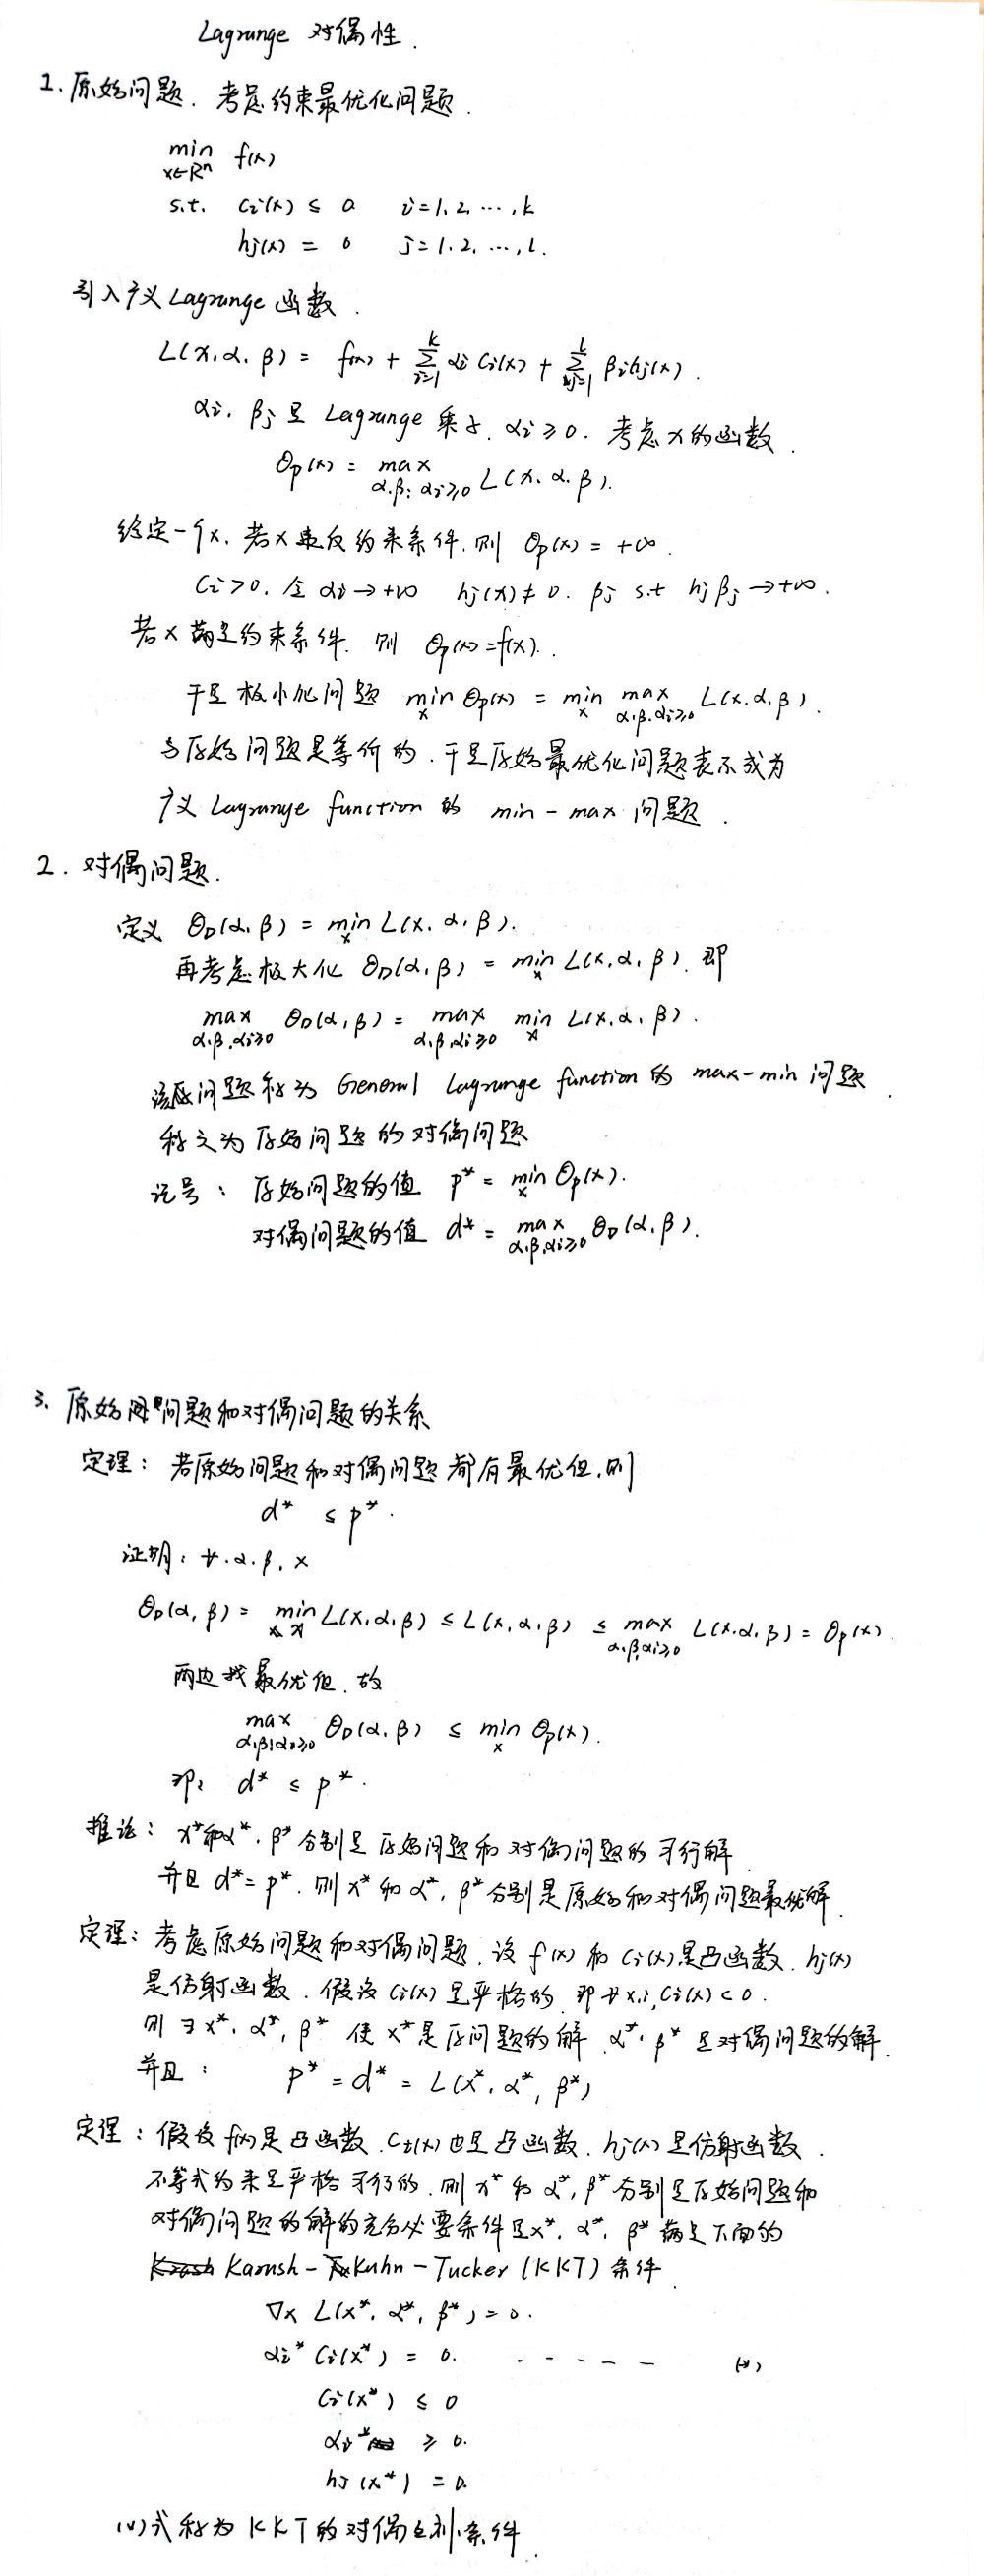 Lagrange 对偶性.
1. 原始问题. 考虑约束最优化问题.
min f(x)
x∈Rⁿ
s.t. ci(x) ≤ 0 i=1,2,…,k
hj(x) = 0 j=1,2,…,l.
引入广义Lagrange函数.
L(x,α,β) = f(x) + ∑_{i=1}^{k} αi ci(x) + ∑_{j=1}^{l} βj hj(x).
αi, βj 是 Lagrange 乘子. αi≥0. 考虑x的函数.
θp(x) = max_{α,β: αi≥0} L(x,α,β).
给定一个x, 若x违反约束条件, 则 θp(x) = +∞.
Ci>0, 令 αi→+∞ hj(x)≠0. βj s.t hjβj→+∞.
若x满足约束条件. 则 θp(x)=f(x).
于是极小化问题 min_x θp(x) = min_x max_{α,β,αi≥0} L(x,α,β).
与原始问题是等价的. 于是原始最优化问题表示成为
广义 Lagrange function 的 min-max 问题.
2. 对偶问题.
定义 θD(α,β) = min_x L(x,α,β).
再考虑极大化 θD(α,β) = min_x L(x,α,β). 即
max_{α,β,αi≥0} θD(α,β) = max_{α,β,αi≥0} min_x L(x,α,β).
问题称为 General Lagrange function 的 max-min 问题.
称之为原始问题的对偶问题
记号: 原始问题的值 p* = min_x θp(x).
对偶问题的值 d* = max_{α,β,αi≥0} θD(α,β).
3. 原始问题和对偶问题的关系
定理: 若原始问题和对偶问题都有最优值, 则
d* ≤ p*.
证明: ∀.α.β, x
θD(α,β) = min_x L(x,α,β) ≤ L(x,α,β) ≤ max_{α,β,αi≥0} L(x,α,β) = θp(x).
两边找最优值. 故
max_{α,β,αi≥0} θD(α,β) ≤ min_x θp(x).
即: d* ≤ p*.
推论: x*和α*, β*分别是原始问题和对偶问题的可行解
并且 d*=p*. 则x*和α*, β*分别是原始和对偶问题最优解.
定理: 考虑原始问题和对偶问题. 设 f(x) 和 Ci(x)是凸函数. hj(x)
是仿射函数. 假设 Ci(x) 是严格的. 即 ∀x,i, Ci(x)<0.
则 ∃x*, α*, β* 使x*是原问题的解 α*, β* 是对偶问题的解.
并且: p* = d* = L(x*, α*, β*)
定理: 假设f(x)是凸函数. Ci(x)也是凸函数. hj(x)是仿射函数.
不等式约束是严格可行的. 则x*和α*, β*分别是原始问题和
对偶问题的解的充分必要条件是x*, α*, β*满足下面的
Karush-Kuhn-Tucker (KKT) 条件.
∇x L(x*, α*, β*) = 0.
αi* Ci(x*) = 0. ----- (*)
Ci(x*) ≤ 0
αi* ≥ 0.
hj(x*) = 0.
(*)式称为KKT的对偶互补条件.